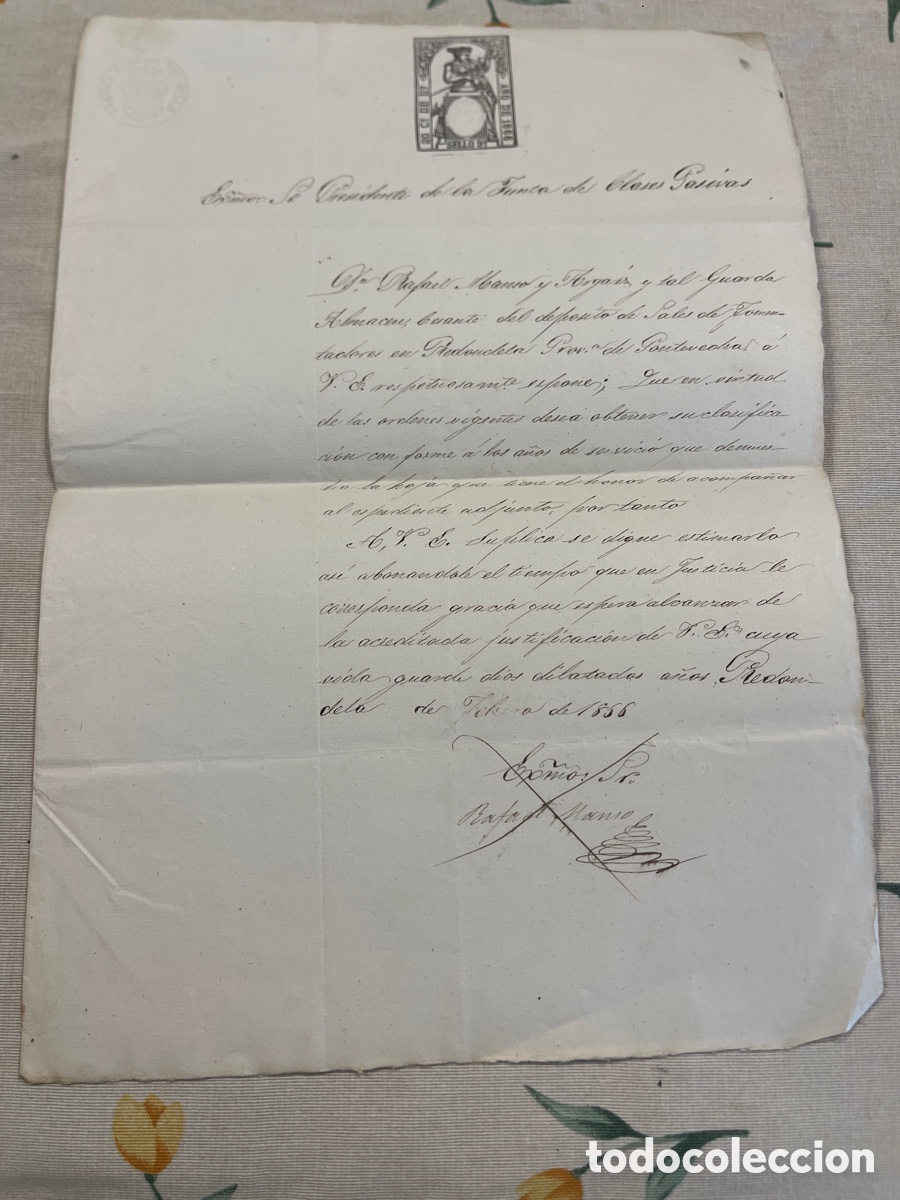 20 CT DE Dº
AÑO DE 1866
SELLO 9º
Exmo. Sr. Presidente de la Junta de Clases Pasivas
Dn. Rafael Manso y Argaiz y tal Guarda
Almacen, Cesante del deposito de Sales de Fomen-
tadores en Redondela Prov.a de Pontevedra, á
V. E. respetuosamte. espone; Que en virtud
de las ordenes vigentes desea obtener su clasifica
ción conforme á los años de servició que demues
tra la hoja que tiene el honor de acompañar
al espediente adjunto, por tanto
A, V. E. Suplica se digne estimarlo
asi abonandole el tiempo que en Justicia le
corresponda gracia que espera alcanzar de
la acreditada justificación de V. E.a cuya
vida guarde dios dilatados años Redon-
dela de Febrero de 1866
Exmo. Sr.
Rafael Manso
todocoleccion